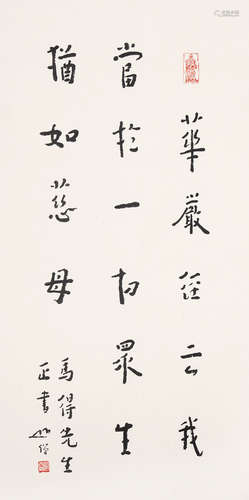 華嚴經云我
當於一切眾生
猶如慈母
馬得先生
正書